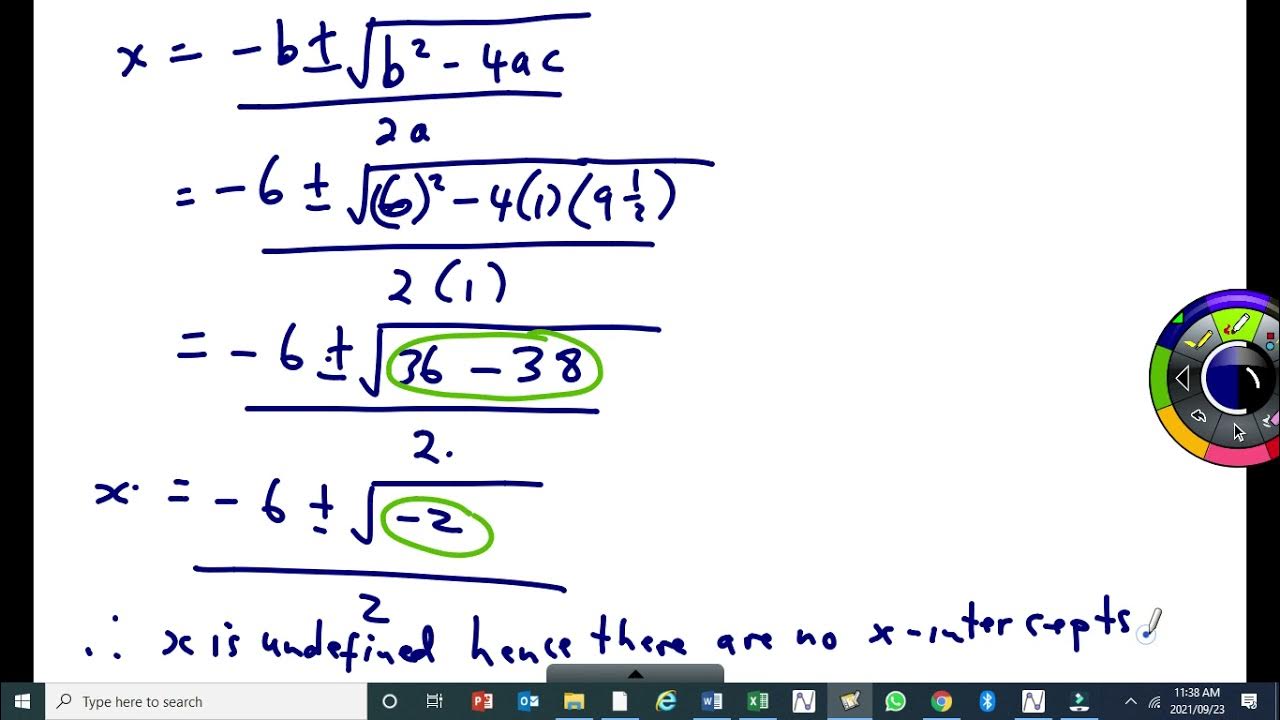 x = -b ± √b² - 4ac
2a
= -6 ± √(6)² - 4(1)(9 1/2)
2(1)
= -6 ± √36 - 38
2.
x. = -6 ± √-2
2
∴ x is undefined hence there are no x-intercepts.
Type here to search
11:38 AM
2021/09/23